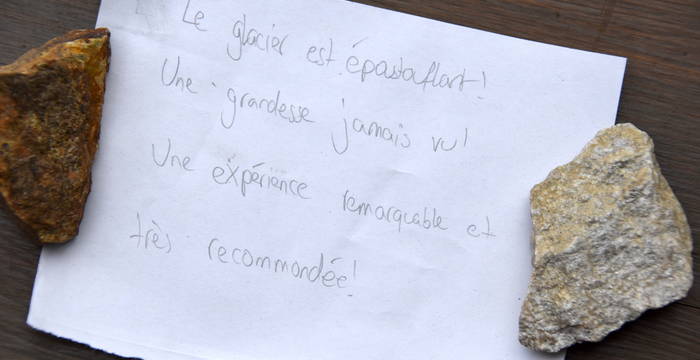 Le glacier est épastaflart!
Une grandesse jamais vu!
Une expérience remarquable et
très recommondée!